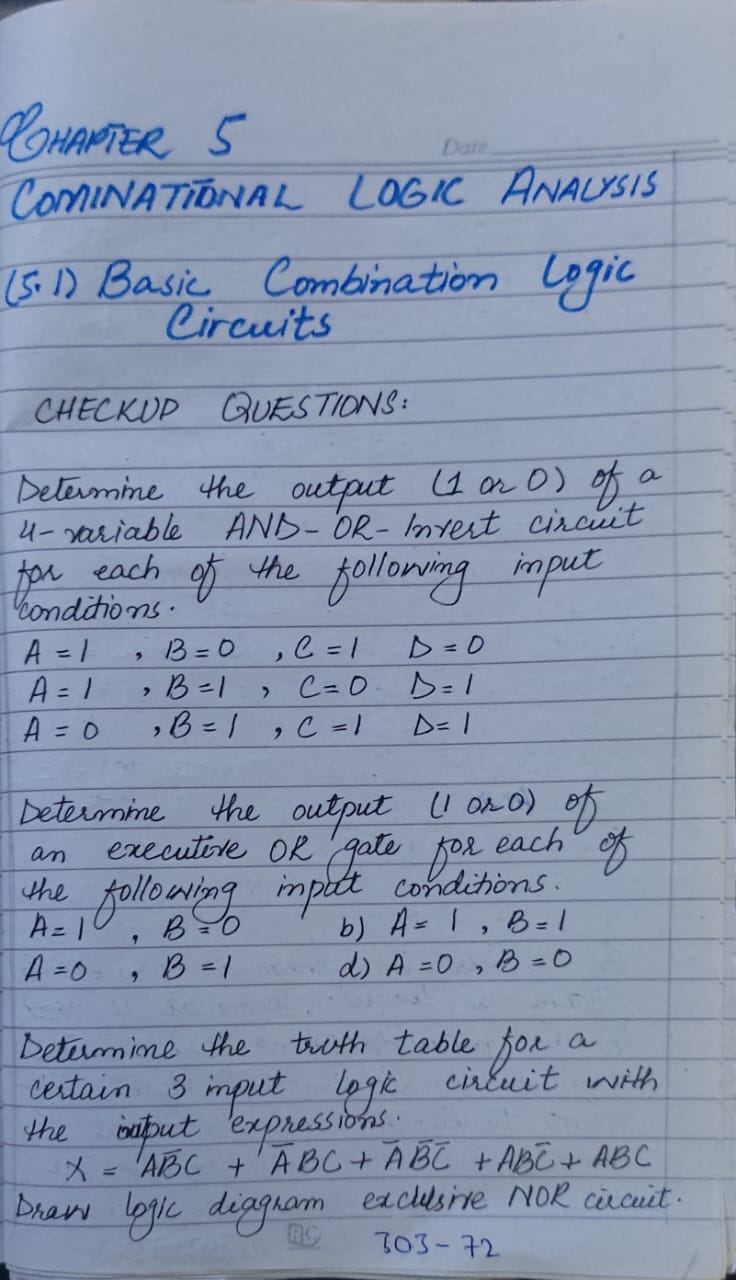 CHAPTER 5
Date
COMINATIONAL LOGIC ANALYSIS
(5.1) Basic Combination Logic
Circuits
CHECKUP QUESTIONS:
Determine the output (1 or 0) of a
4-variable AND-OR-Invert circuit
for each of the following input
conditions.
A = 1 , B = 0 , C = 1 D = 0
A = 1 , B = 1 , C = 0 D = 1
A = 0 , B = 1 , C = 1 D = 1
Determine the output (1 or 0) of
an executive OR gate for each of
the following input conditions.
A = 1 , B = 0 b) A = 1 , B = 1
A = 0 , B = 1 d) A = 0 , B = 0
Determine the truth table for a
certain 3 input logic circuit with
the output expressions.
X = AB̅C + A̅BC + A̅B̅C̅ + ABC̅ + ABC
Draw logic diagram exclusive NOR circuit.
303-72